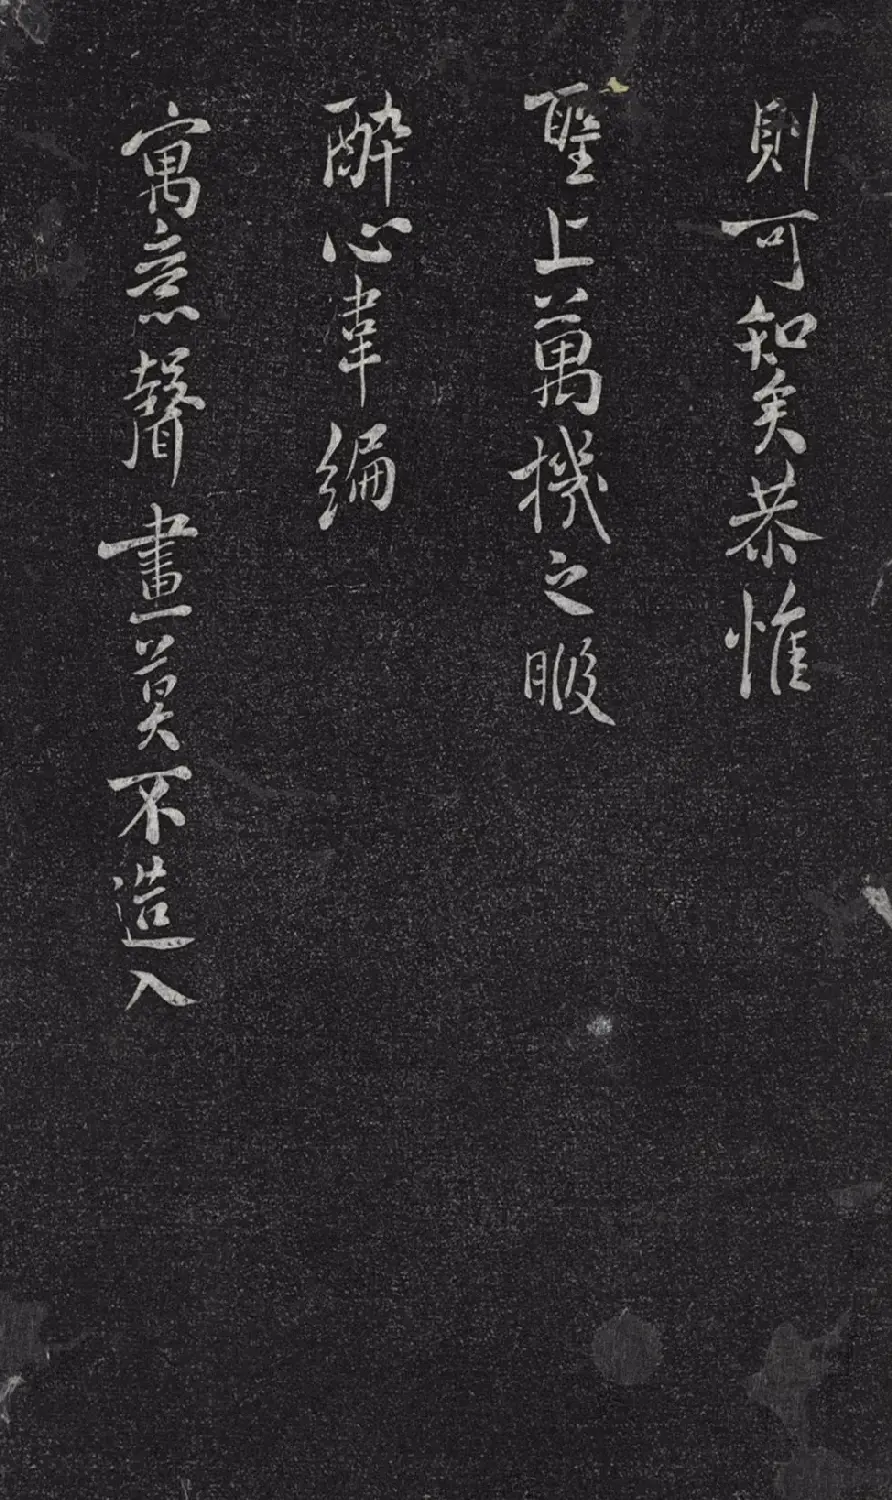 則可知矣恭惟
聖上萬機之暇
醉心韋編
寓意聲畫莫不造入